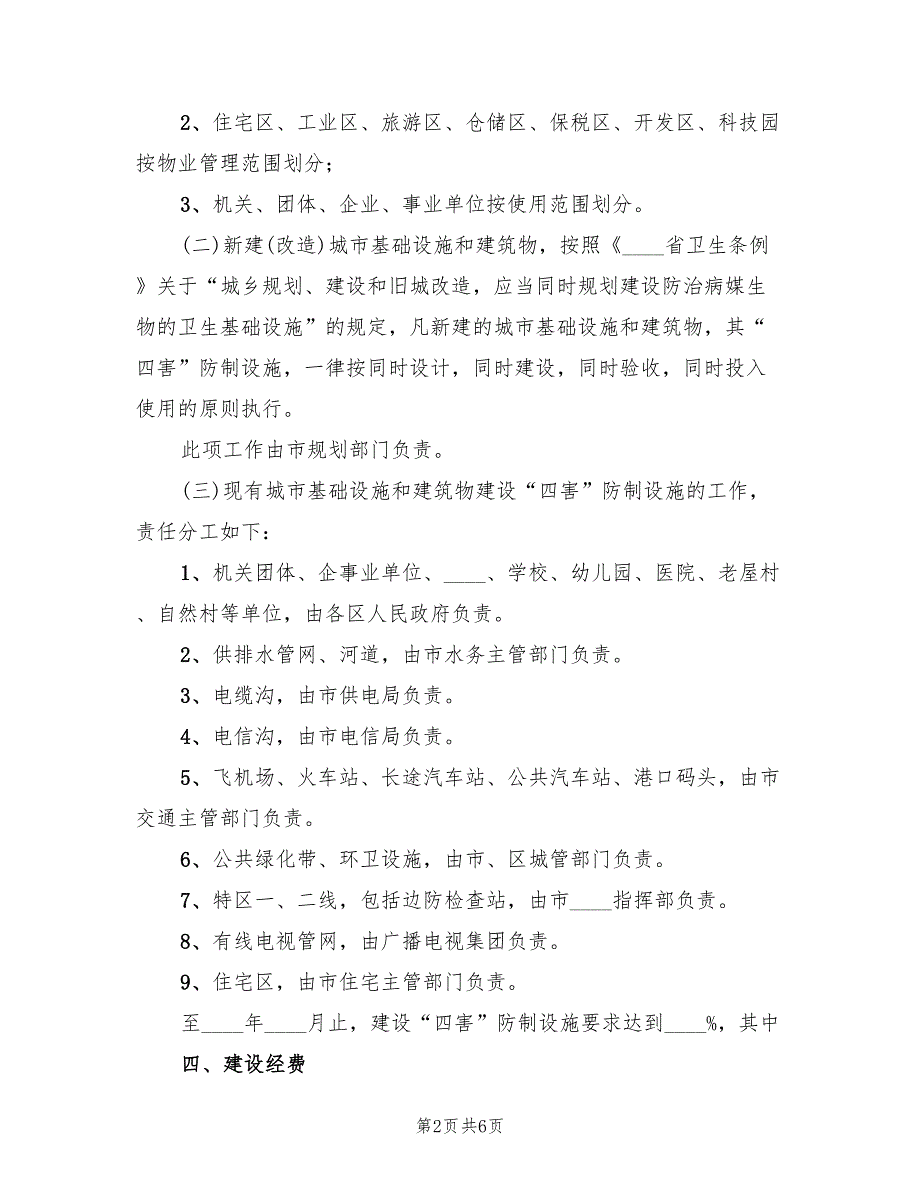 2、住宅区、工业区、旅游区、仓储区、保税区、开发区、科技园
按物业管理范围划分；
3、机关、团体、企业、事业单位按使用范围划分。
(二)新建(改造)城市基础设施和建筑物，按照《____省卫生条例
》关于“城乡规划、建设和旧城改造，应当同时规划建设防治病媒生
物的卫生基础设施”的规定，凡新建的城市基础设施和建筑物，其“
四害”防制设施，一律按同时设计，同时建设，同时验收，同时投入
使用的原则执行。
此项工作由市规划部门负责。
(三)现有城市基础设施和建筑物建设“四害”防制设施的工作，
责任分工如下：
1、机关团体、企事业单位、____、学校、幼儿园、医院、老屋村
、自然村等单位，由各区人民政府负责。
2、供排水管网、河道，由市水务主管部门负责。
3、电缆沟，由市供电局负责。
4、电信沟，由市电信局负责。
5、飞机场、火车站、长途汽车站、公共汽车站、港口码头，由市
交通主管部门负责。
6、公共绿化带、环卫设施，由市、区城管部门负责。
7、特区一、二线，包括边防检查站，由市____指挥部负责。
8、有线电视管网，由广播电视集团负责。
9、住宅区，由市住宅主管部门负责。
至____年____月止，建设“四害”防制设施要求达到____%，其中
四、建设经费
第2页共6页